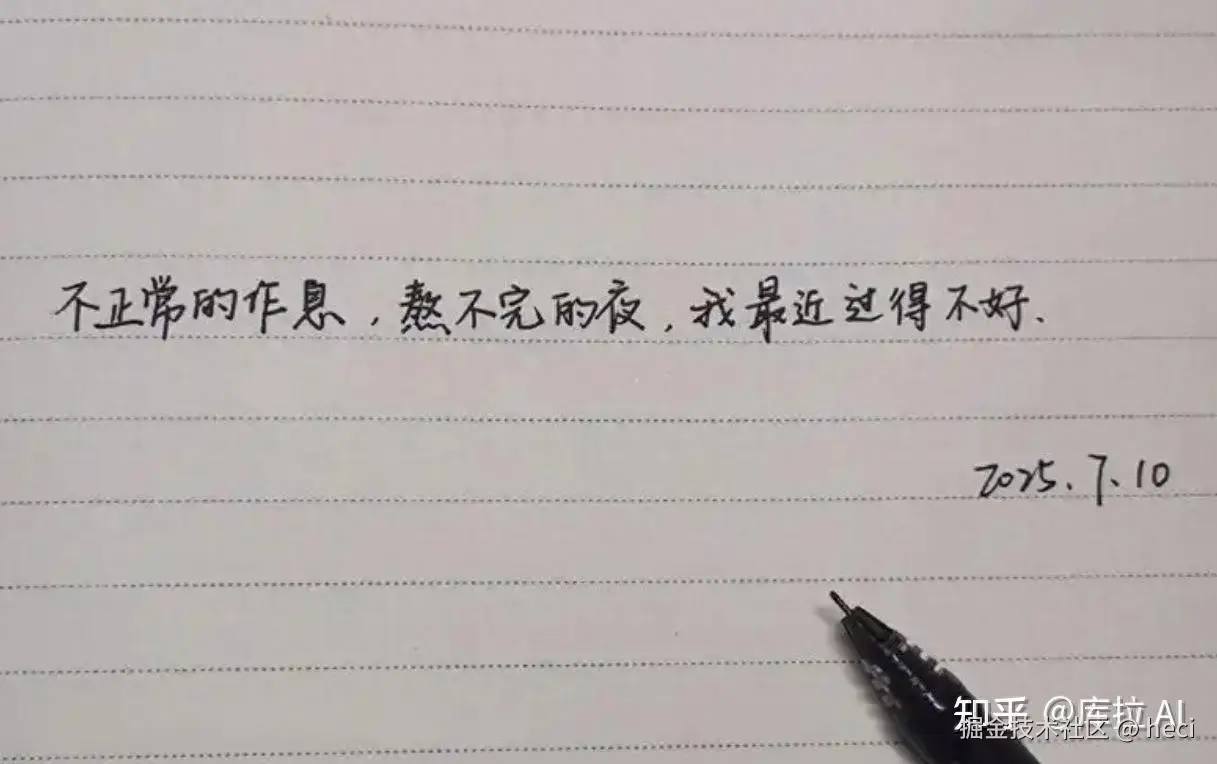 不正常的作息,熬不完的夜,我最近过得不好.
2025.7.10
知乎 @库拉 AI
掘金技术社区 @ heci